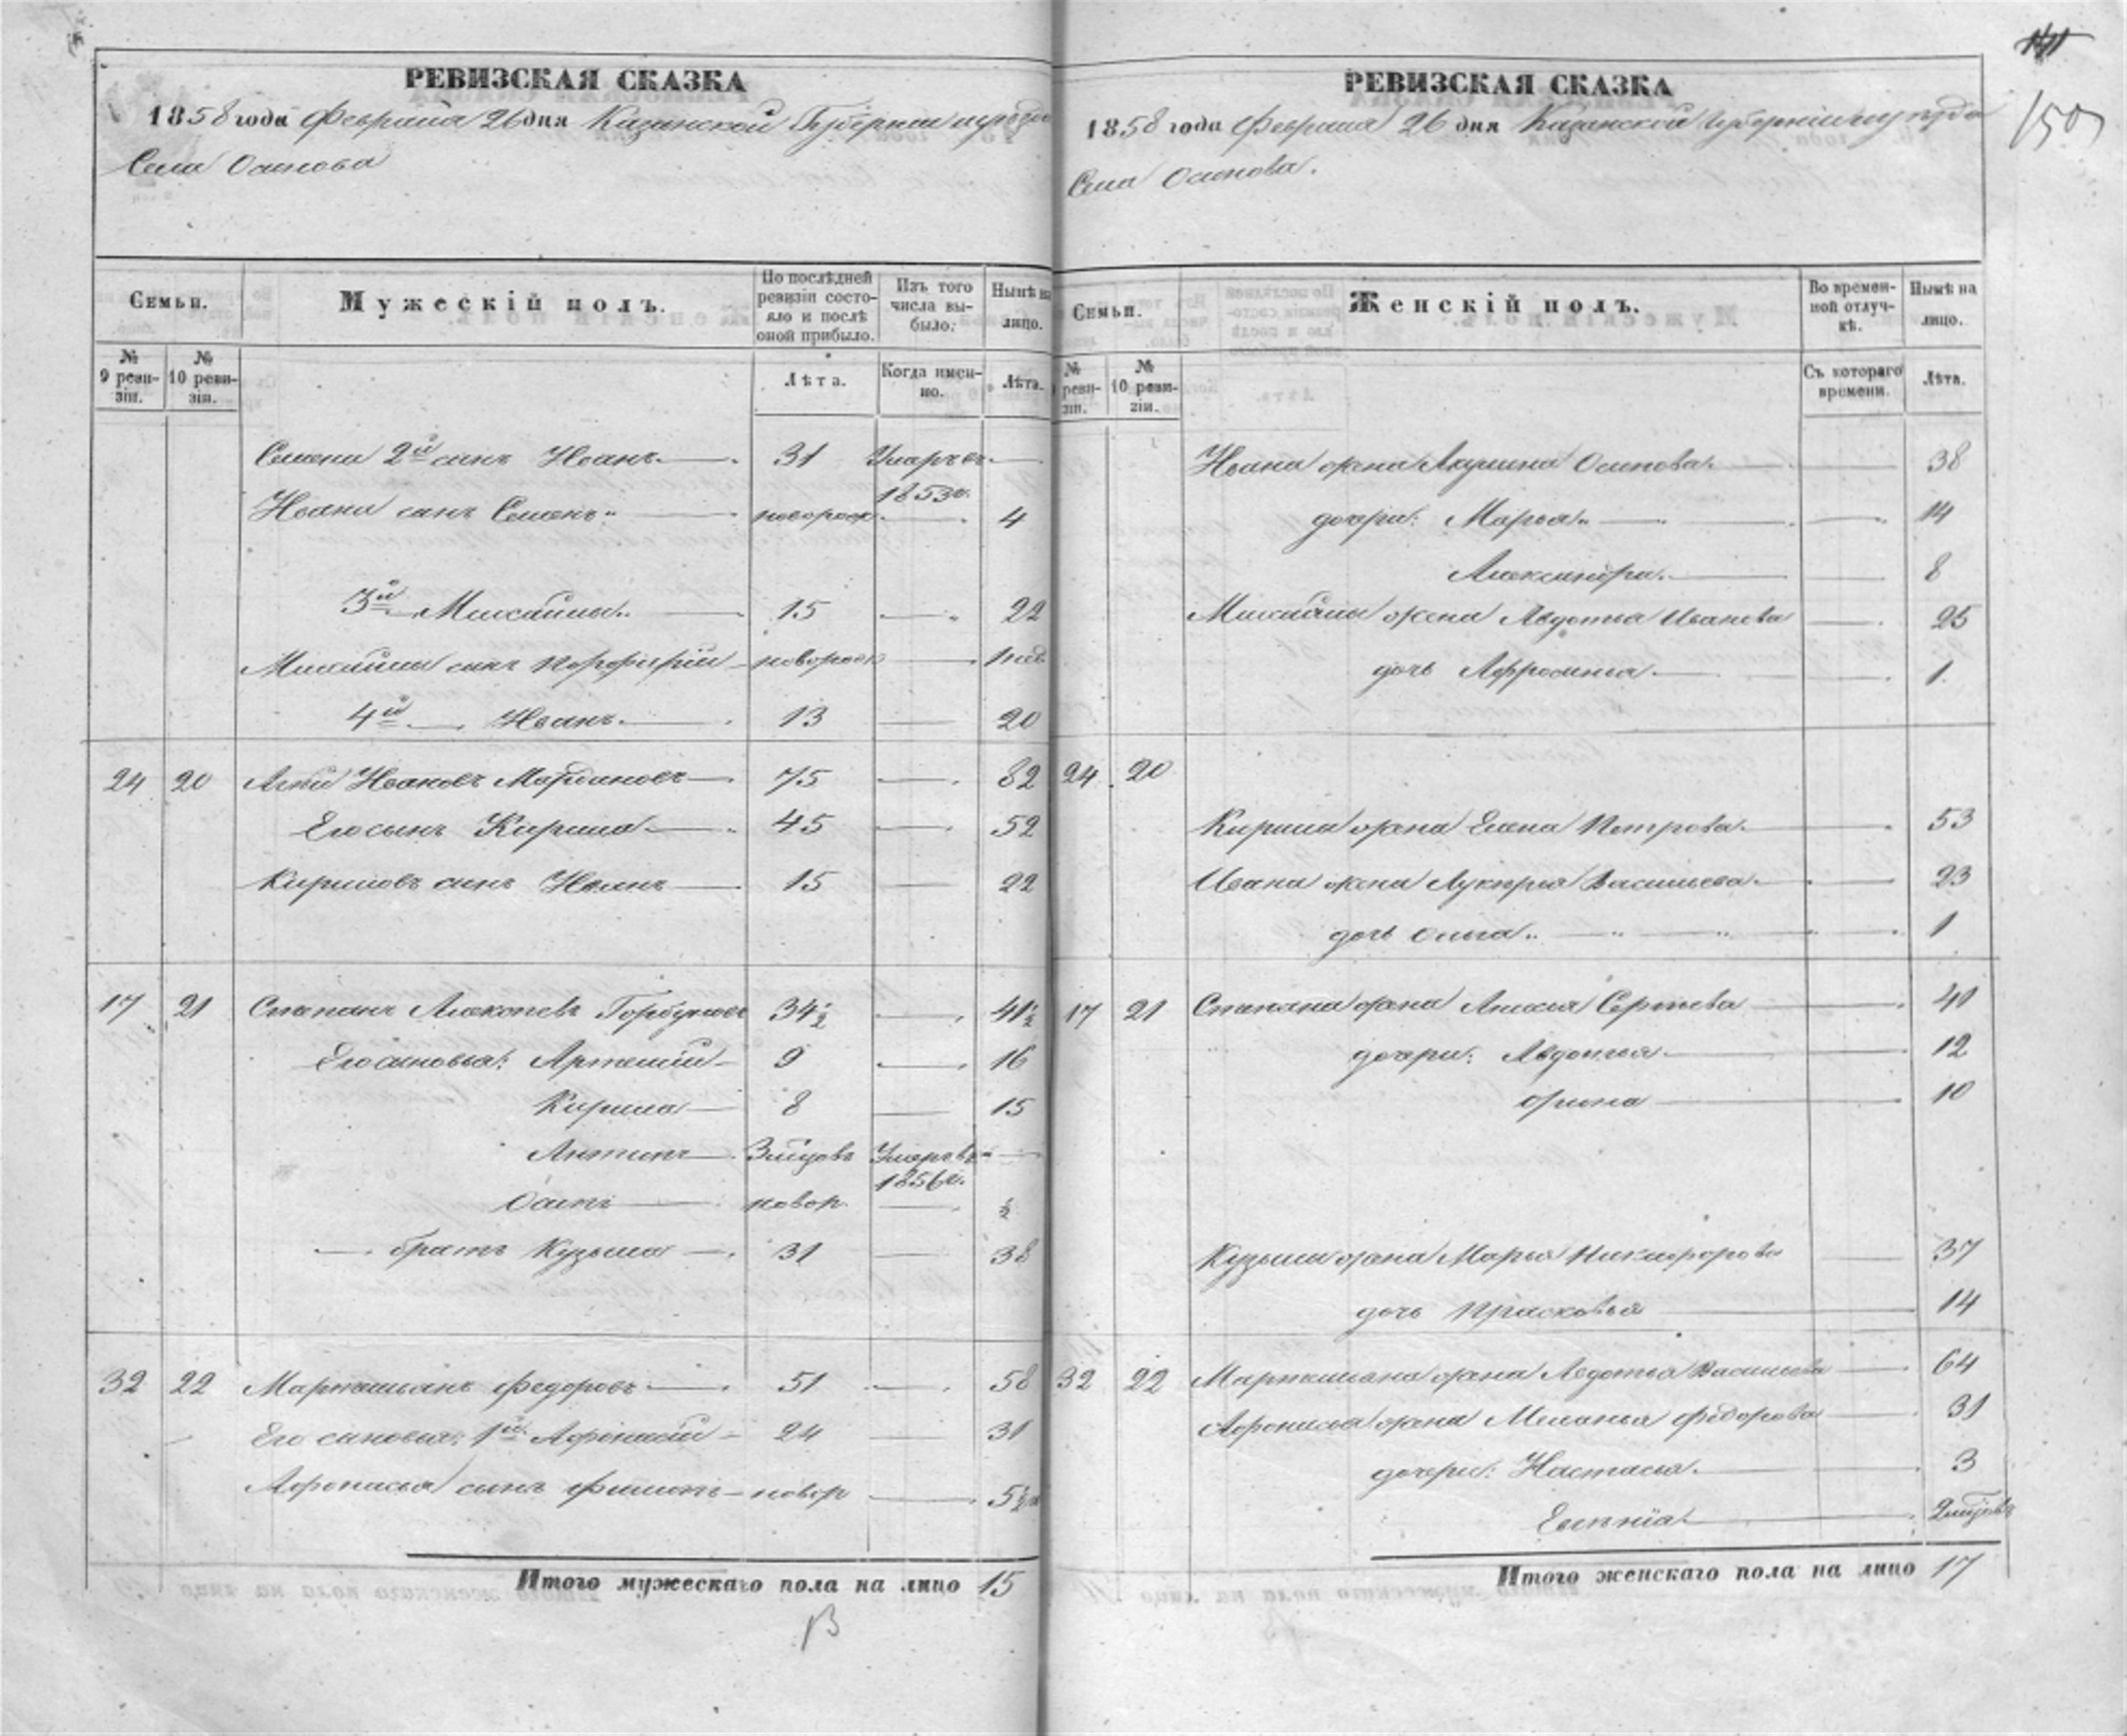 РЕВИЗСКАЯ СКАЗКА
1858 года Февраля 26 дня Казанской Губернии и уезда
Села Осинова
Семьи.
Мужескій полъ.
По послѣдней ревизіи состояло и послѣ оной прибыло.
Изъ того числа выбыло.
Нынѣ на лицо.
№ 9 ревизіи.
№ 10 ревизіи.
Лѣта.
Когда именно.
Лѣта.
Семена 2й сынъ Иванъ 31 Умеръ въ 1853 г.
Ивана сынъ Семенъ новорож 4
3й Михайла 15 22
Михайлы сынъ Порфирій новорож
4й Иванъ 13 20
24 20 Ивановъ 75 82
Его сынъ Кирила 45 52
Кириловъ сынъ Иванъ 15 22
17 21 Степанъ Алексѣевъ Горбуновъ 34½ 41½
Его сыновья: Артемій 9 16
Кирила 8 15
Антипъ Умеръ въ 1856 г.
Осипъ новор. ½
братъ Кузьма 31 38
32 22 Мартемьянъ Федоровъ 51 58
Его сыновья: 1й Афонасій 24 31
Афонасья сынъ Филипъ новор 5½
Итого мужескаго пола на лицо 15
РЕВИЗСКАЯ СКАЗКА
1858 года Февраля 26 дня Казанской Губерніи и уезда
Села Осинова.
150
Семьи.
Женскій полъ.
Во временной отлучкѣ.
Нынѣ на лицо.
№ ревизіи.
№ 10 ревизіи.
Съ котораго времени.
Лѣта.
Ивана жена Акулина Осипова 38
дочери: Марья 14
Александра 8
Михайлы жена Авдотья Иванова 25
дочь Афросинья 1
24 20
Кирилы жена Елена Петрова 53
Ивана жена Лукерья Васильева 23
дочь Ольга 1
17 21 Степана жена Анисья Сергѣева 41
дочери: Авдотья 12
Орина 10
Кузьмы жена Марья Никифорова 37
дочь Прасковья 14
32 22 Мартемьяна жена Авдотья Васильева 64
Афонасья жена Меланья Федорова 31
дочери: Настасья 3
2 мѣсяцовъ
Итого женскаго пола на лицо 17